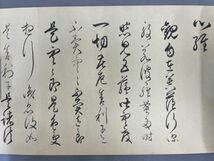 心經
観自在菩薩行深
般若波羅蜜多時
照見五蘊皆空度
一切苦厄舎利子色
不異空空不異色色即
是空空即是色受
想行識亦復如
是舎利子是諸法